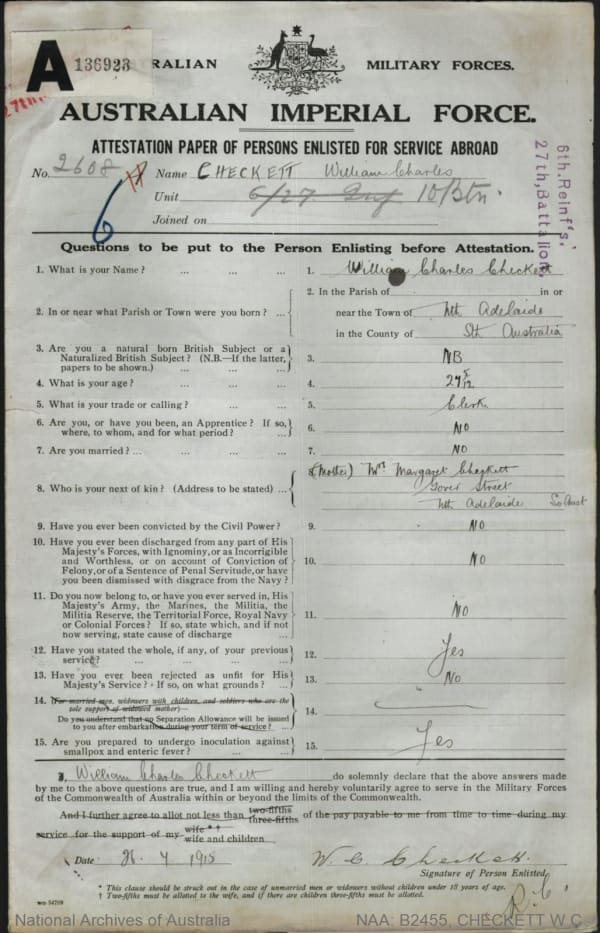 A 136923 RALIAN MILITARY FORCES.
AUSTRALIAN IMPERIAL FORCE.
ATTESTATION PAPER OF PERSONS ENLISTED FOR SERVICE ABROAD
No. 2608 Name CHECKETT William Charles
6 Unit 6/27 Inf 10/Btn.
Joined on
6th, Reinf's,
27th, Battalion,
Questions to be put to the Person Enlisting before Attestation.
1. What is your Name? ... ... ... 1. William Charles Checkett
2. In or near what Parish or Town were you born? ... 2. In the Parish of in or
near the Town of Nth Adelaide
in the County of Sth Australia
3. Are you a natural born British Subject or a
Naturalized British Subject? (N.B.—If the latter,
papers to be shown.) ... ... 3. NB
4. What is your age? ... ... 4. 24 5/12
5. What is your trade or calling? ... ... 5. Clerk
6. Are you, or have you been, an Apprentice? If so,
where, to whom, and for what period? ... 6. No
7. Are you married? ... ... ... 7. No
8. Who is your next of kin? (Address to be stated) ... 8. (Mother) Mrs Margaret Checkett
Gover Street
Nth Adelaide So Aust
9. Have you ever been convicted by the Civil Power? 9. No
10. Have you ever been discharged from any part of His
Majesty's Forces, with Ignominy, or as Incorrigible
and Worthless, or on account of Conviction of
Felony, or of a Sentence of Penal Servitude, or have
you been dismissed with disgrace from the Navy? 10. No
11. Do you now belong to, or have you ever served in, His
Majesty's Army, the Marines, the Militia, the
Militia Reserve, the Territorial Force, Royal Navy
or Colonial Forces? If so, state which, and if not
now serving, state cause of discharge ... 11. No
12. Have you stated the whole, if any, of your previous
service? ... ... ... ... 12. Yes
13. Have you ever been rejected as unfit for His
Majesty's Service? If so, on what grounds? ... 13. No
14. (For married men, widowers with children, and soldiers who are the
sole support of widowed mother)—
Do you understand that no Separation Allowance will be issued
to you after embarkation during your term of service? ... 14.
15. Are you prepared to undergo inoculation against
smallpox and enteric fever? ... ... 15. Yes
I, William Charles Checkett do solemnly declare that the above answers made
by me to the above questions are true, and I am willing and hereby voluntarily agree to serve in the Military Forces
of the Commonwealth of Australia within or beyond the limits of the Commonwealth.
And I further agree to allot not less than two-fifths three-fifths of the pay payable to me from time to time during my
service for the support of my wife * † wife and children
Date 26. 7. 1915 W. C. Checkett.
Signature of Person Enlisted.
* This clause should be struck out in the case of unmarried men or widowers without children under 18 years of age.
† Two-fifths must be allotted to the wife, and if there are children three-fifths must be allotted.
National Archives of Australia NAA: B2455, CHECKETT W C